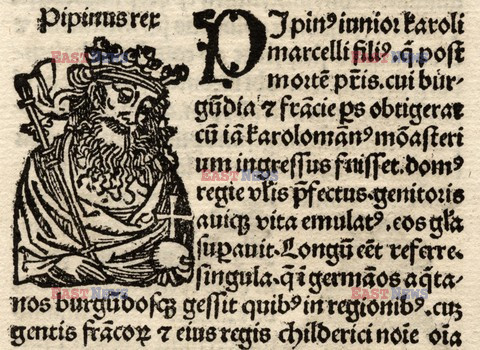 Pipinus rex
Pipinꝰ iunior karoli
marcelli filiꝰ. q̃ post
mortẽ pr̃is. cui bur-
gũdia ⁊ frãcie ps obtigerat
cũ iã karolomãnꝰ mõasteri
um ingressus fuisset. domꝰ
regie vl̃is p̃fectus. genitoris
auiqꝫ vita emulatꝰ. eos gl̃a
supauit. Longũ eẽt referre.
singula. q̃ ĩ germãos aq̃ta-
nos burgũdosqꝫ gessit quibꝰ in regionibꝰ. cuꝫ
gentis frãcoꝝ ⁊ eius regis childerici noĩe oĩa
EAST NEWS
EAST NEWS
EAST NEWS
EAST NEWS
EAST NEWS